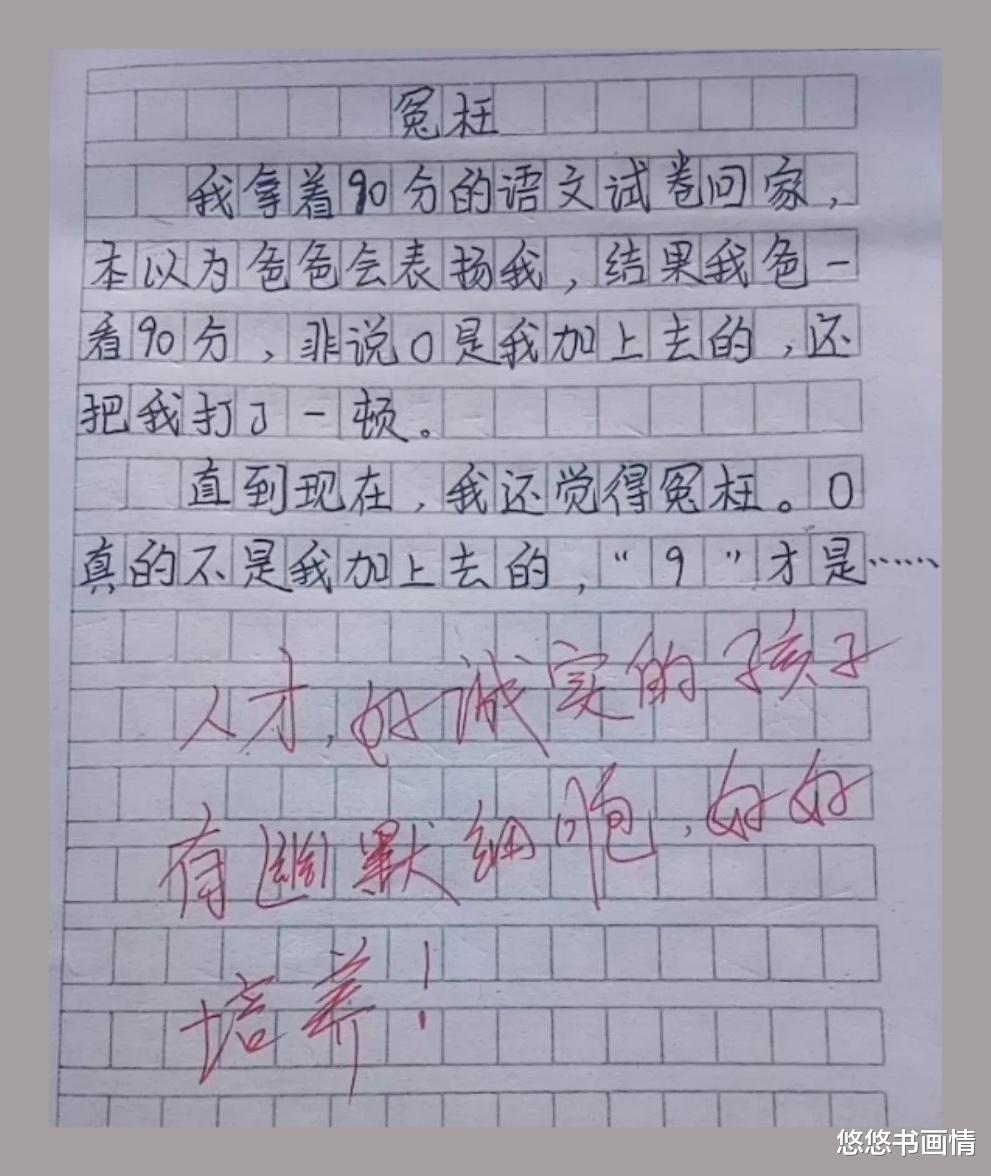 冤枉
我拿着90分的语文试卷回家，
本以为爸爸会表扬我，结果我爸一
看90分，非说0是我加上去的，还
把我打了一顿。
直到现在，我还觉得冤枉。0
真的不是我加上去的，“9”才是……
人才，好诚实的孩子
有幽默细胞，好好
培养！
悠悠书画情